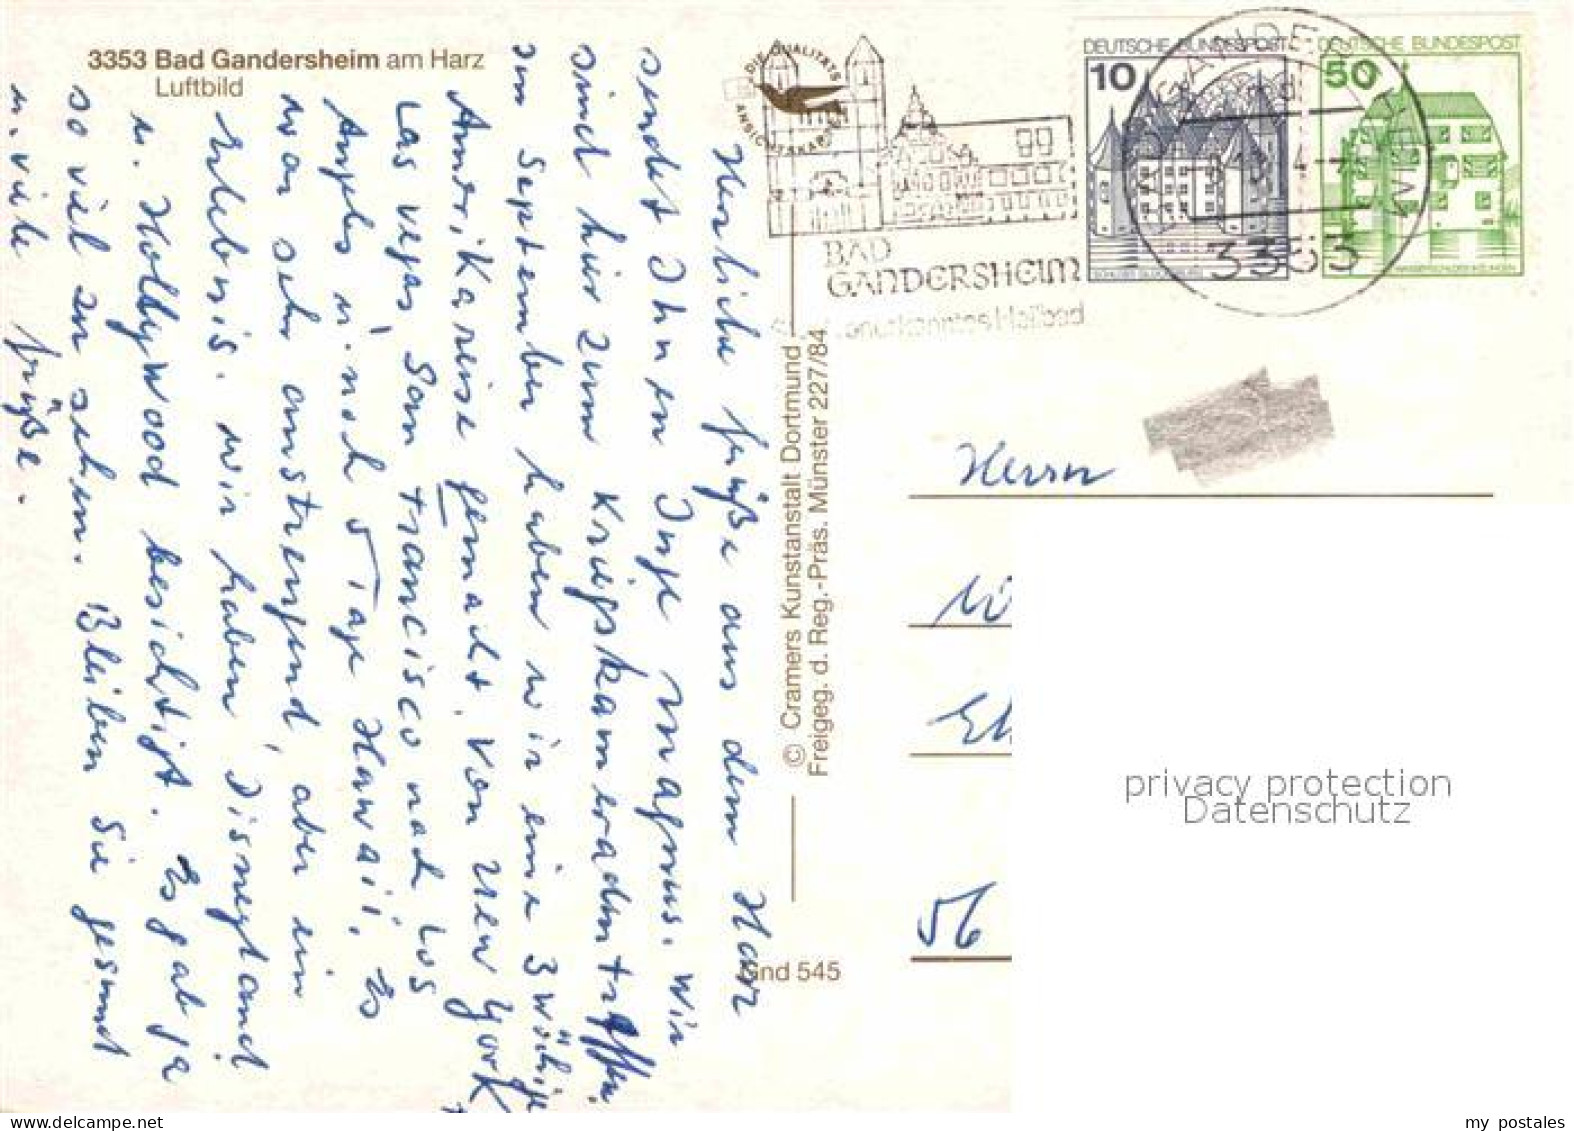 3353 Bad Gandersheim am Harz
Luftbild
DIE QUALITÄTS
ANSICHTSKARTE
BAD
GANDERSHEIM
anerkanntes Heilbad
DEUTSCHE BUNDESPOST
10
DEUTSCHE BUNDESPOST
50
3353
Herzliche Grüße aus dem Harz
sendet Ihnen Inge Magnus. Wir
sind hier zum Kriegskameradentreffen.
Im September haben wir eine 3 wöchige
Amerikareise gemacht. Von New York
Las Vegas, San Francisco nach Los
Angeles u. noch 5 Tage Hawaii, Es
war sehr anstrengend, aber ein
Erlebnis. Wir haben Disneyland
u. Hollywood besichtigt. Es gab ja
so viel zu sehen. Bleiben Sie gesund
u. viele Grüße.
© Cramers Kunstanstalt Dortmund
Freigeg. d. Reg.-Präs. Münster 227/84
Gnd 545
Herrn
56
privacy protection
Datenschutz
www.delcampe.net
my postales